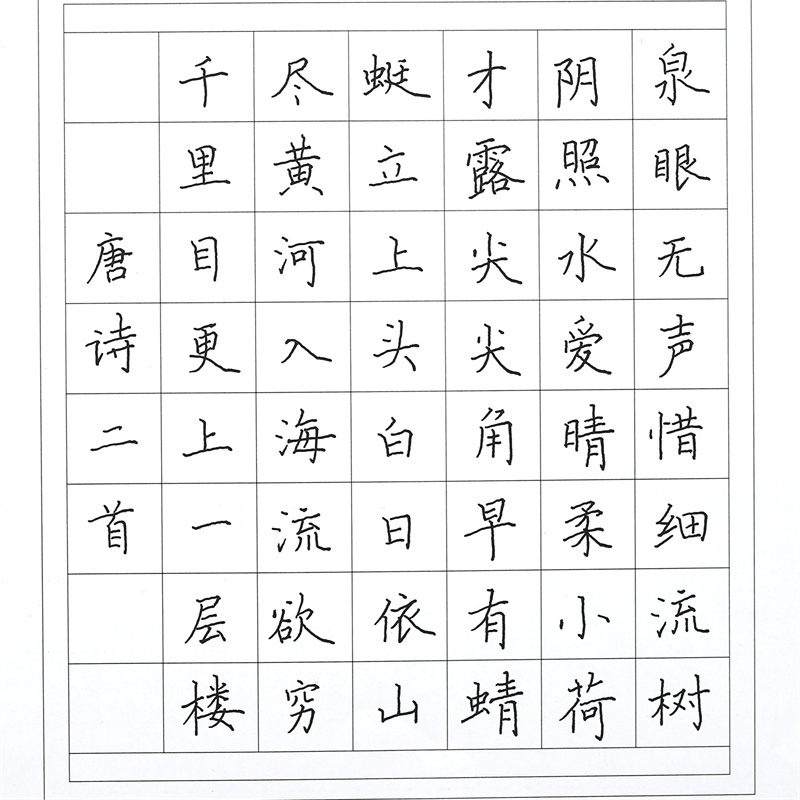 泉眼无声惜细流树
阴照水爱晴柔小荷
才露尖尖角早有蜻
蜓立上头白日依山
尽黄河入海流欲穷
千里目更上一层楼
唐诗二首